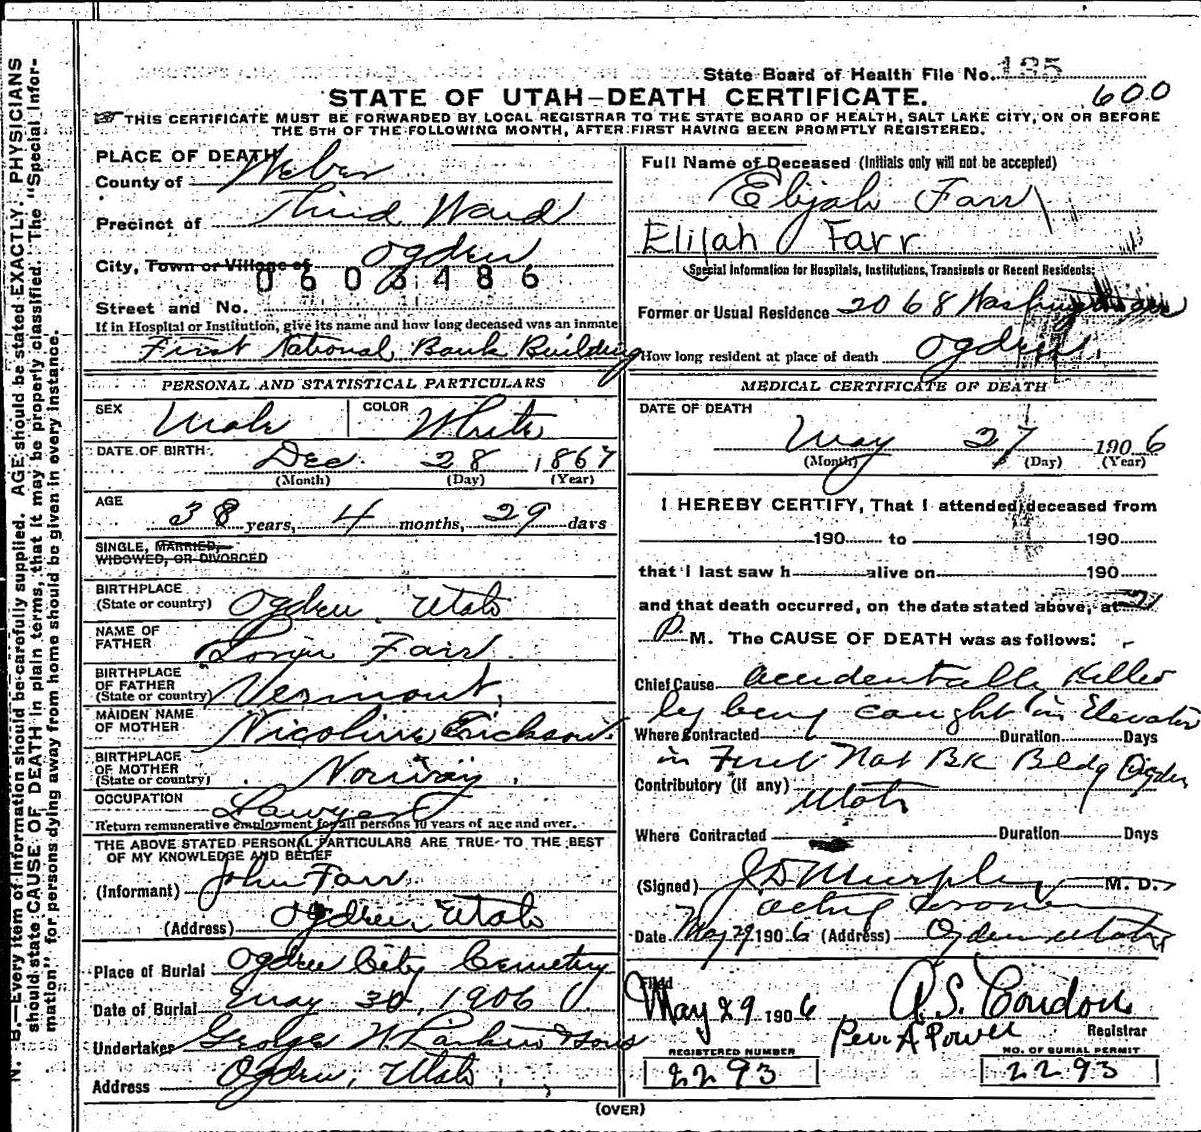 State Board of Health File No. 135
600
STATE OF UTAH—DEATH CERTIFICATE.
THIS CERTIFICATE MUST BE FORWARDED BY LOCAL REGISTRAR TO THE STATE BOARD OF HEALTH, SALT LAKE CITY, ON OR BEFORE
THE 5TH OF THE FOLLOWING MONTH, AFTER FIRST HAVING BEEN PROMPTLY REGISTERED.
PLACE OF DEATH
County of Weber
Precinct of Third Ward
City, Town or Village of Ogden
0603486
Street and No.
If in Hospital or Institution, give its name and how long deceased was an inmate
First National Bank Building
PERSONAL AND STATISTICAL PARTICULARS
SEX Male COLOR White
DATE OF BIRTH Dec. 28, 1867
(Month) (Day) (Year)
AGE 38 years, 4 months, 29 days
SINGLE, MARRIED,
WIDOWED, OR DIVORCED
BIRTHPLACE
(State or country) Ogden Utah
NAME OF
FATHER Lorin Farr
BIRTHPLACE
OF FATHER
(State or country) Vermont,
MAIDEN NAME
OF MOTHER Nicoline Erickson.
BIRTHPLACE
OF MOTHER
(State or country) Norway.
OCCUPATION Lawyer
Return remunerative employment for all persons 10 years of age and over.
THE ABOVE STATED PERSONAL PARTICULARS ARE TRUE TO THE BEST
OF MY KNOWLEDGE AND BELIEF
(Informant) John Farr
(Address) Ogden Utah
Place of Burial Ogden City Cemetery
Date of Burial May 30, 1906
Undertaker George W. Larkin & Sons
Address Ogden, Utah,
Full Name of Deceased (Initials only will not be accepted)
Elijah Farr
Elijah Farr
Special Information for Hospitals, Institutions, Transients or Recent Residents:
Former or Usual Residence 2068 Washington Ave
How long resident at place of death Ogden.
MEDICAL CERTIFICATE OF DEATH
DATE OF DEATH
May 27 1906
(Month) (Day) (Year)
I HEREBY CERTIFY, That I attended deceased from
190 to 190
that I last saw h alive on 190
and that death occurred, on the date stated above, at
P. M. The CAUSE OF DEATH was as follows:
Chief Cause accidentally Killed
by being caught in Elevator
Where Contracted Duration Days
in First Nat Bk Bldg Ogden
Contributory (if any) Utah
Where Contracted Duration Days
(Signed) J.D. Murphy M. D.
acting Coroner
Date May 29 1906 (Address) Ogden Utah
Filed
May 29 1906 A.S. Condon
Per A Power Registrar
REGISTERED NUMBER NO. OF BURIAL PERMIT
2293 2293
(OVER)
N. B.—Every item of information should be carefully supplied. AGE should be stated EXACTLY. PHYSICIANS
should state CAUSE OF DEATH in plain terms, that it may be properly classified. The "Special Infor-
mation" for persons dying away from home should be given in every instance.